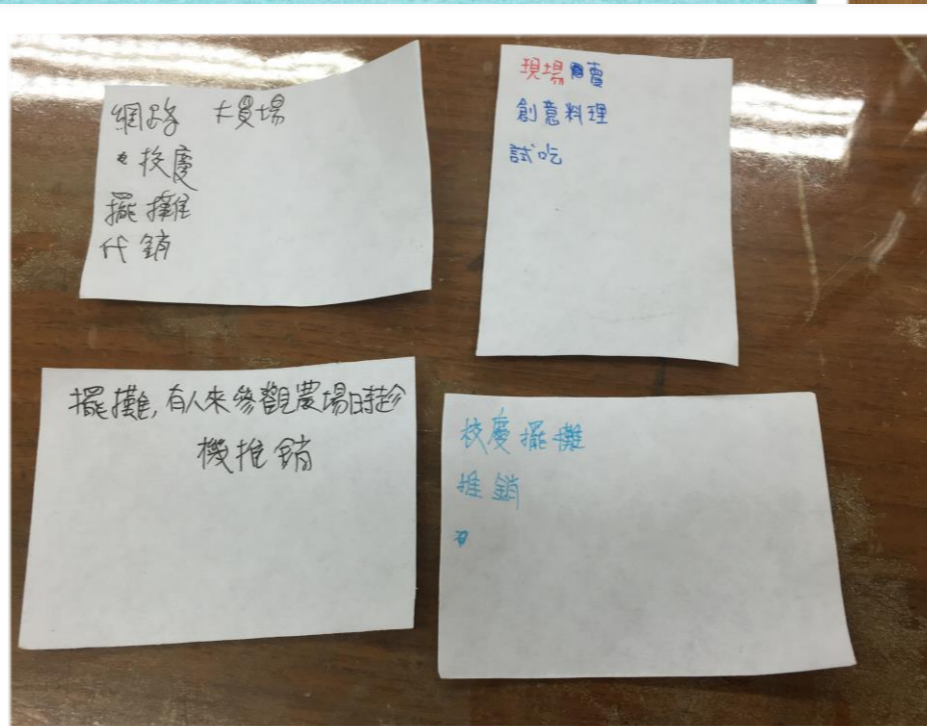 網路 大賣場
校慶
擺攤
代銷
現場賣
創意料理
試吃
擺攤,有人來參觀農場時趁
機推銷
校慶擺攤
推銷